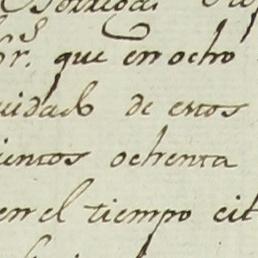 or. que en ocho
uidado de estos
ientos ochenta
en el tiempo cit